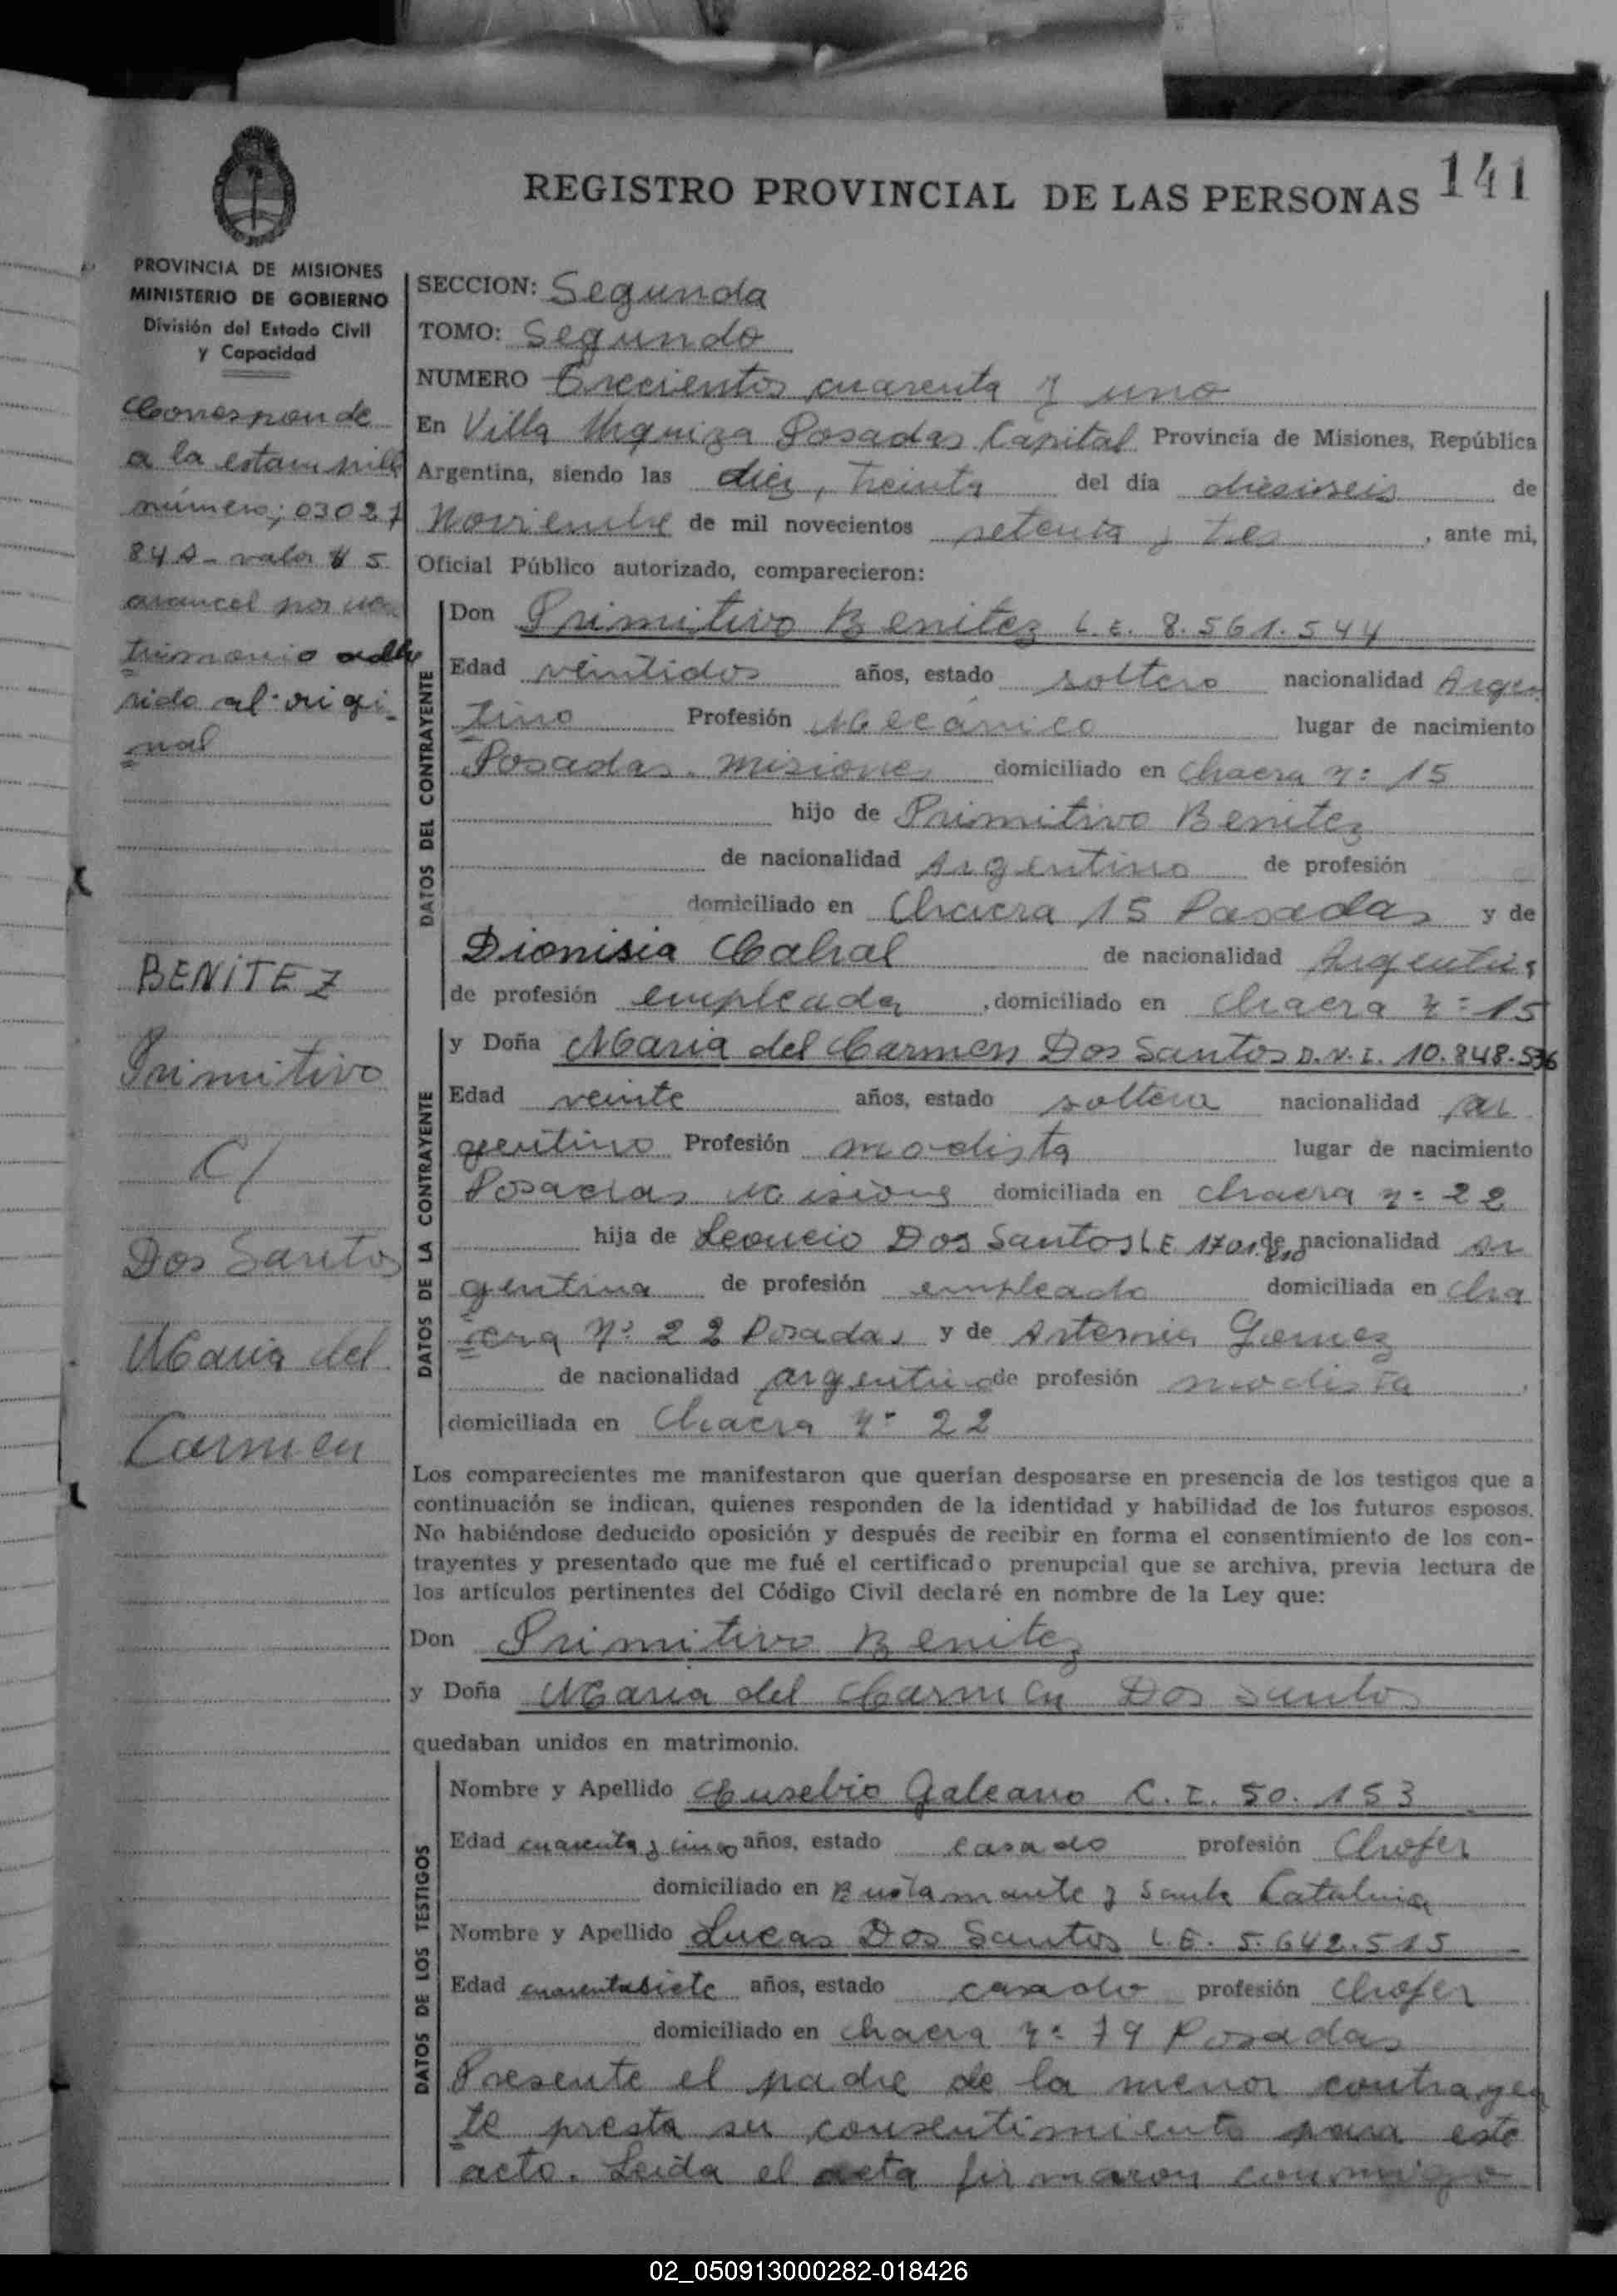 141
REGISTRO PROVINCIAL DE LAS PERSONAS
PROVINCIA DE MISIONES
MINISTERIO DE GOBIERNO
División del Estado Civil
y Capacidad
Corresponde
a la estampill
número; 03027
84 A - valor $ 5
arancel por ma
trimonio adhe
rido al origi-
nal
BENITEZ
Primitivo
C/
Dos Santos
Maria del
Carmen
SECCION: Segunda
TOMO: Segundo
NUMERO Trecientos cuarenta y uno
En Villa Urquiza Posadas Capital Provincia de Misiones, República
Argentina, siendo las diez, treinta del día diesiseis de
Noviembre de mil novecientos setenta y tres, ante mi,
Oficial Público autorizado, comparecieron:
DATOS DEL CONTRAYENTE
Don Primitivo Benitez L.E. 8.561.544
Edad veintidos años, estado soltero nacionalidad Argen
tino Profesión Mecánico lugar de nacimiento
Posadas. Misiones domiciliado en Chacra nº 15
hijo de Primitivo Benitez
de nacionalidad Argentino de profesión
domiciliado en Chacra 15 Posadas y de
Dionisia Cabral de nacionalidad Argentina
de profesión empleada, domiciliado en Chacra nº 15
DATOS DE LA CONTRAYENTE
y Doña Maria del Carmen Dos Santos D.N.I. 10.848.536
Edad veinte años, estado soltera nacionalidad ar
gentino Profesión modista lugar de nacimiento
Posadas Misiones domiciliada en chacra nº 22
hija de Leoncio Dos Santos LE 1701.810 de nacionalidad ar
gentina de profesión empleado domiciliada en Cha
cra Nº 22 Posadas y de Artemia Gomez
de nacionalidad argentina de profesión modista
domiciliada en Chacra nº 22
Los comparecientes me manifestaron que querían desposarse en presencia de los testigos que a
continuación se indican, quienes responden de la identidad y habilidad de los futuros esposos.
No habiéndose deducido oposición y después de recibir en forma el consentimiento de los con-
trayentes y presentado que me fué el certificado prenupcial que se archiva, previa lectura de
los artículos pertinentes del Código Civil declaré en nombre de la Ley que:
Don Primitivo Benitez
y Doña Maria del Carmen Dos Santos
quedaban unidos en matrimonio.
DATOS DE LOS TESTIGOS
Nombre y Apellido Eusebio Galeano C.I. 50.153
Edad cuarenta y cinco años, estado casado profesión Chofer
domiciliado en Bustamante y Santa Catalina
Nombre y Apellido Lucas Dos Santos L.E. 5.642.515
Edad cuarentasiete años, estado casado profesión Chofer
domiciliado en chacra nº 79 Posadas
Presente el padre de la menor contrayen
te presta su consentimiento para este
acto. Leida el acta firmaron conmigo
02_050913000282-018426